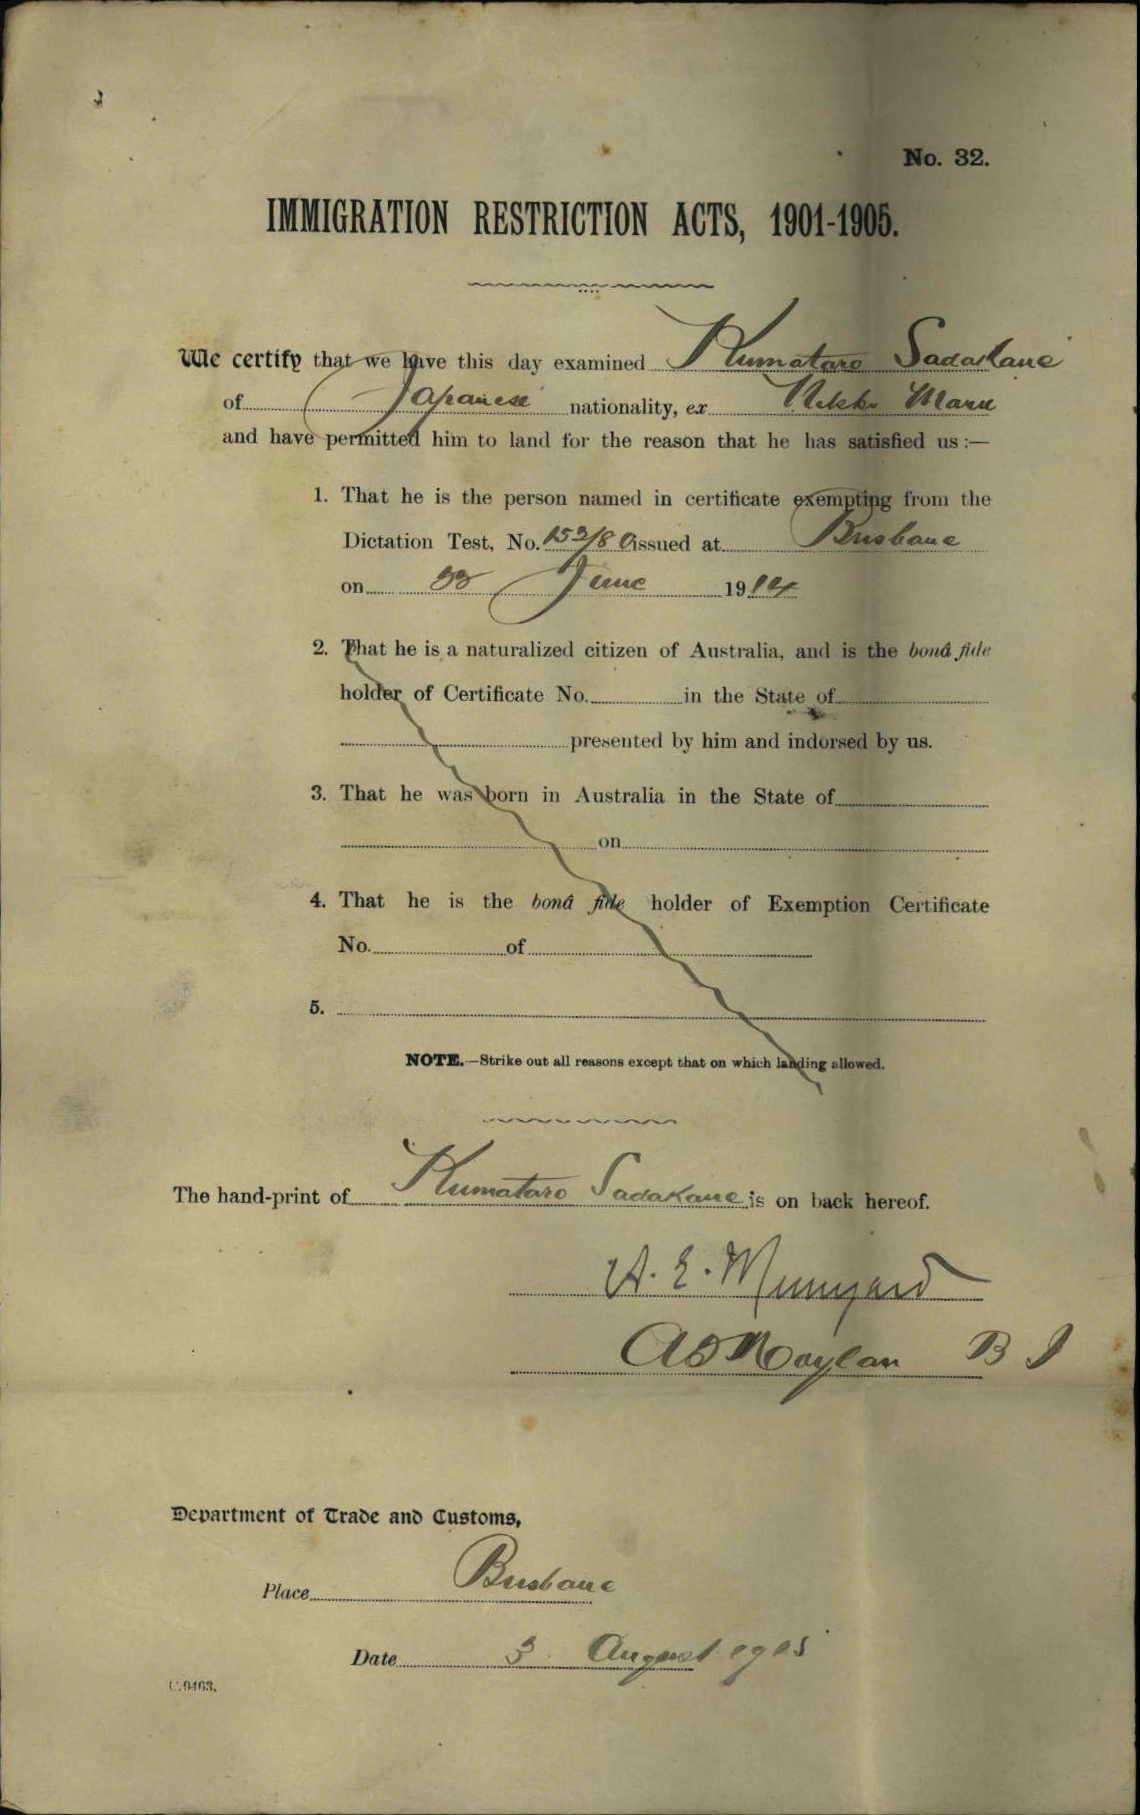 No. 32.
IMMIGRATION RESTRICTION ACTS, 1901-1905.
We certify that we have this day examined Kumataro Sadakane
of Japanese nationality, ex Nikko Maru
and have permitted him to land for the reason that he has satisfied us :—
1. That he is the person named in certificate exempting from the
Dictation Test, No. issued at Brisbane
on June 1914
2. That he is a naturalized citizen of Australia, and is the bonâ fide
holder of Certificate No. in the State of
presented by him and indorsed by us.
3. That he was born in Australia in the State of
on
4. That he is the bonâ fide holder of Exemption Certificate
No. of
5.
NOTE.—Strike out all reasons except that on which landing allowed.
The hand-print of Kumataro Sadakane is on back hereof.
A. E. Munyard
Moylan B I
Department of Trade and Customs,
Place Brisbane
Date 3 August 1915
C.9463.